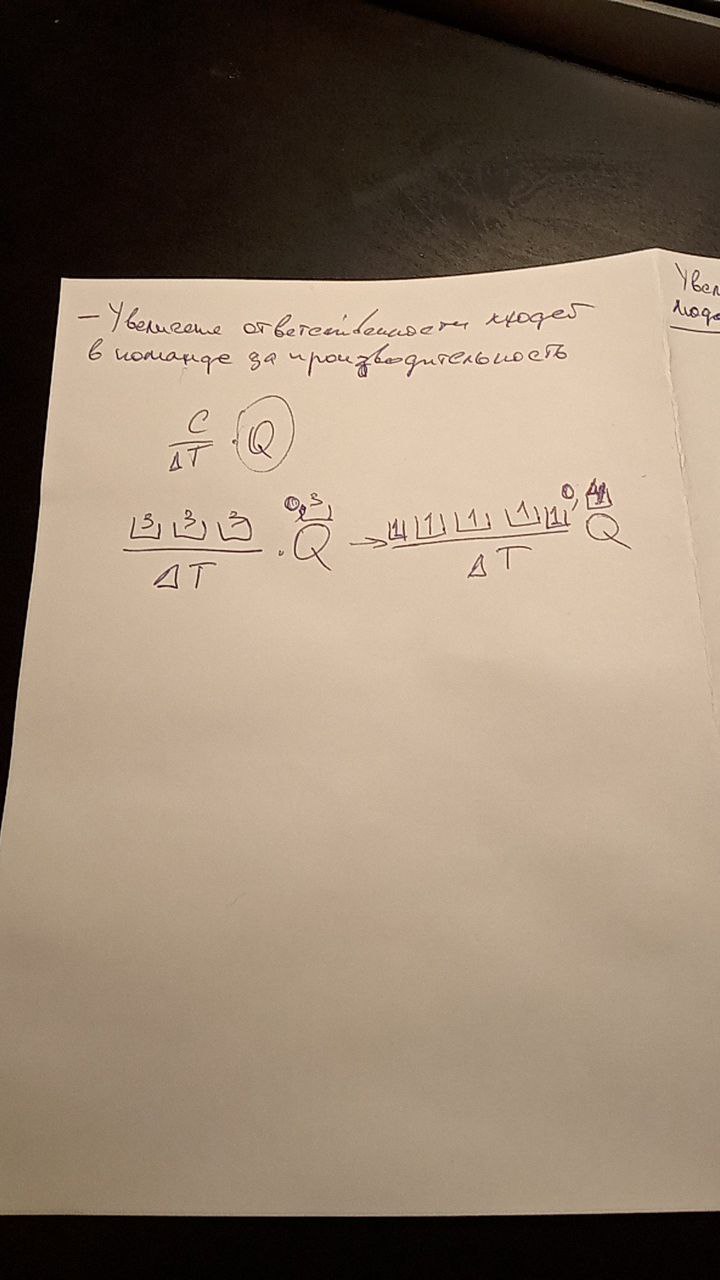 — Увеличение ответственности людей
в команде за производительность
C
ΔT · Q
3 3 3 0,3
ΔT · Q → 1 1 1 1 1 0,
ΔT Q
Увел
люде